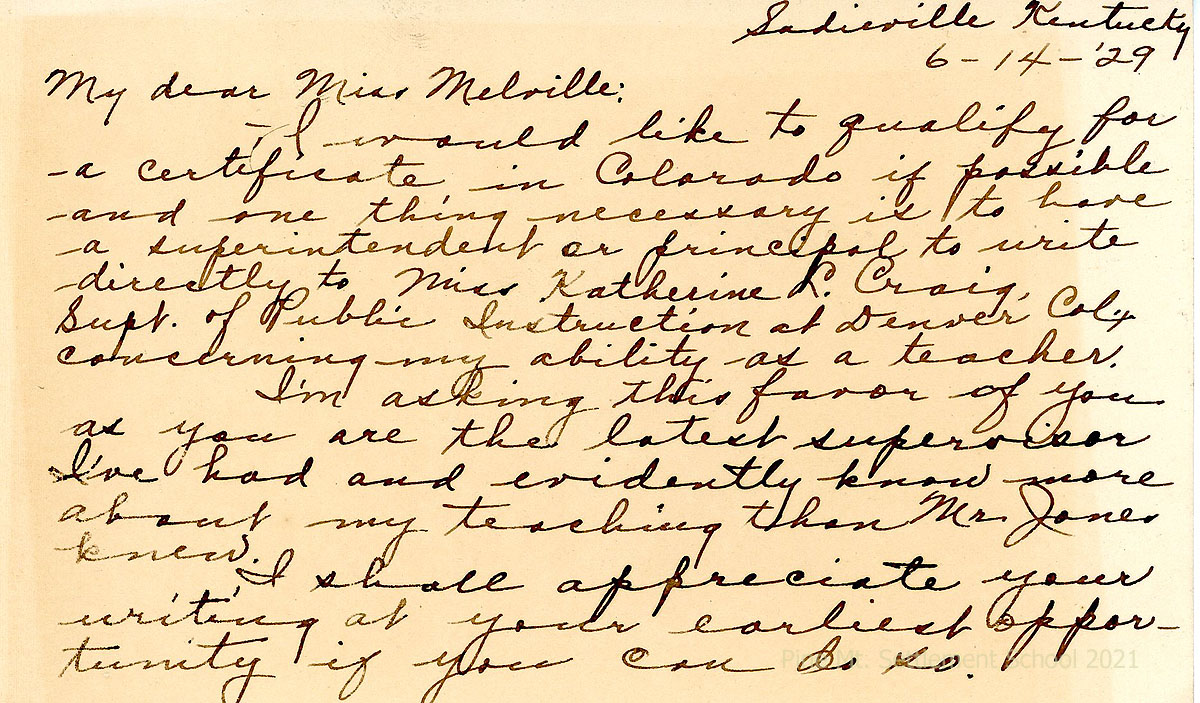 Sadieville Kentucky
6-14-'29
My dear Miss Melville:
I would like to qualify for
a certificate in Colorado if possible
and one thing necessary is to have
a superintendent or principal to write
directly to Miss Katherine L. Craig,
Supt. of Public Instruction at Denver Col.,
concerning my ability as a teacher.
I'm asking this favor of you
as you are the latest supervisor
I've had and evidently know more
about my teaching than Mr. Jones
knew.
I shall appreciate your
writing at your earliest oppor-
tunity if you can do so.
Pine Mt. Settlement School 2021